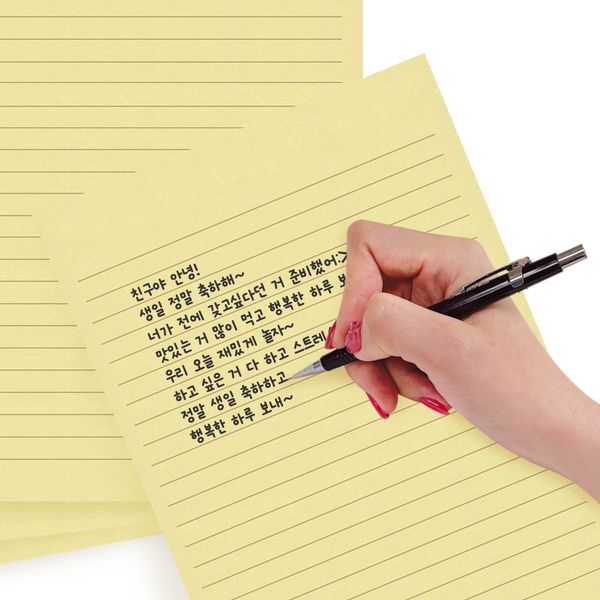 친구야 안녕!
생일 정말 축하해~
너가 전에 갖고싶다던 거 준비했어:>
맛있는 거 많이 먹고 행복한 하루 보
우리 오늘 재밌게 놀자~
하고 싶은 거 다 하고 스트레
정말 생일 축하하고
행복한 하루 보내~